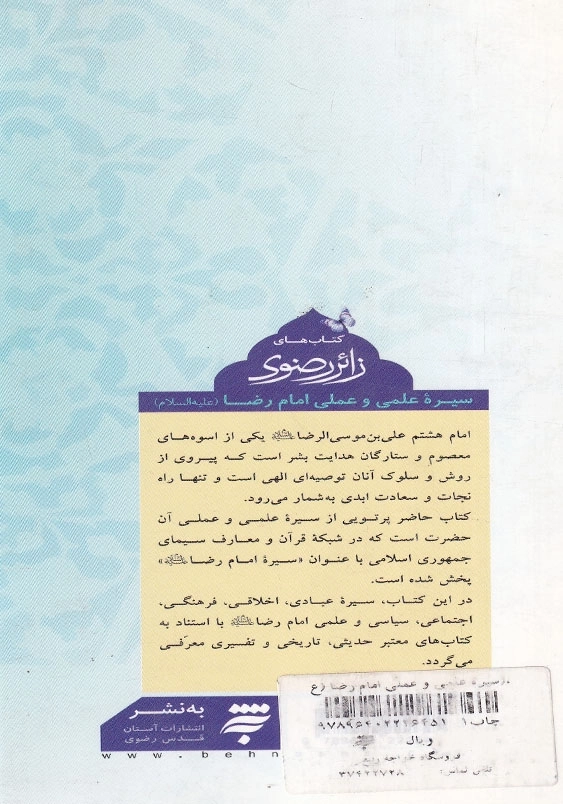 کتاب‌های
زائر رضوی
سیرهٔ علمی و عملی امام رضا (علیه‌السلام)
امام هشتم علی‌بن‌موسی‌الرضا یکی از اسوه‌های
معصوم و ستارگان هدایت بشر است که پیروی از
روش و سلوک آنان توصیه‌ای الهی است و تنها راه
نجات و سعادت ابدی به‌شمار می‌رود.
کتاب حاضر پرتویی از سیرهٔ علمی و عملی آن
حضرت است که در شبکهٔ قرآن و معارف سیمای
جمهوری اسلامی با عنوان «سیرهٔ امام رضا»
پخش شده است.
در این کتاب، سیرهٔ عبادی، اخلاقی، فرهنگی،
اجتماعی، سیاسی و علمی امام رضا با استناد به
کتاب‌های معتبر حدیثی، تاریخی و تفسیری معرّفی
می‌گردد.
به‌نشر
انتشارات آستان
قدس رضوی
www.behn
سیره علمی و عملی امام رضا (ع
چاپ ۱
ریال
فروشگاه
تلفن تماس: